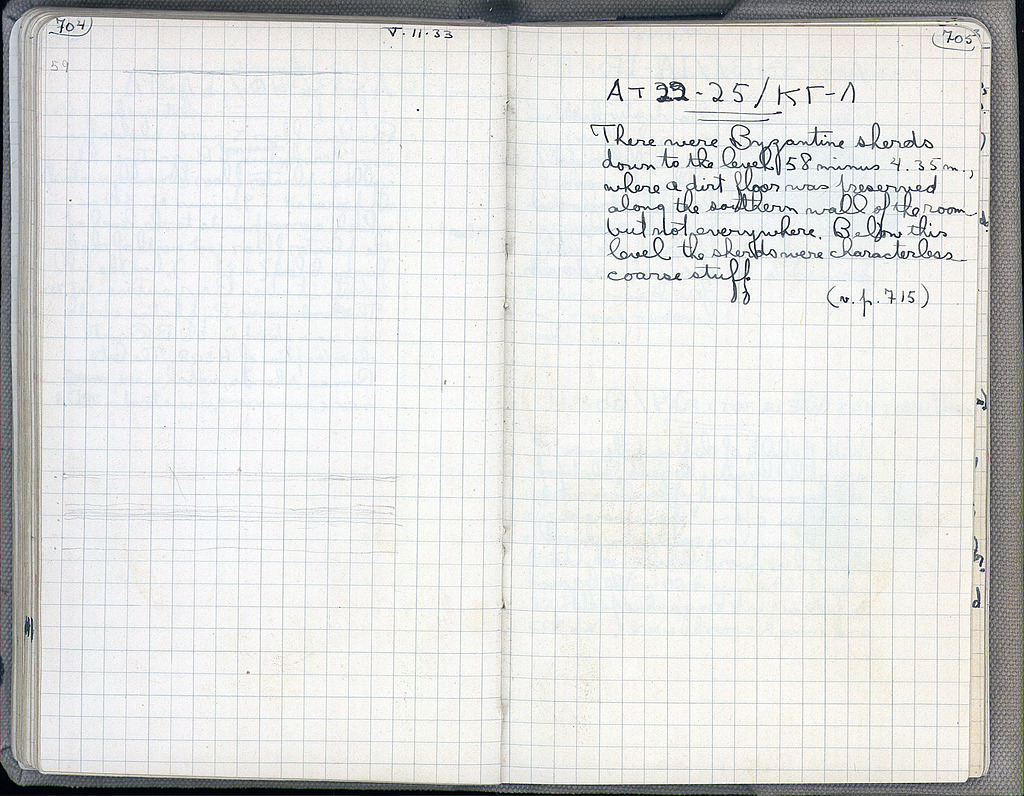 704
V·11·33
59
705
AT 22-25/ΚΓ-Λ
There were Byzantine sherds
down to the level 58 minus 4.35 m.,
where a dirt floor was preserved
along the southern wall of the room
but not everywhere. Below this
level the sherds were characterless
coarse stuff
(v. p. 715)